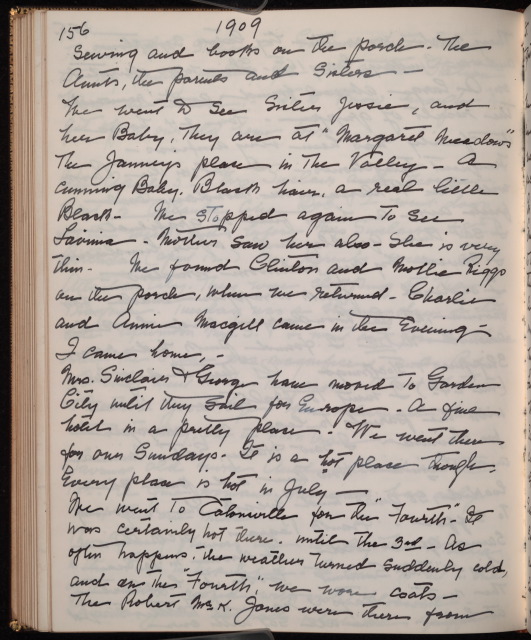 156 1909
Sewing and books on the porch. The
Aunts, the parents and Sisters —
We went to see Sister Jessie, and
her Baby, They are at "Margaret Meadows"
The Janneys place in The Valley — A
cunning Baby. Black hair, a real little
Black. We stopped again To see
Lavinia. Mother saw her also — She is very
thin. We found Clinton and Mollie Riggs
on the porch, when we returned. Charlie
and Annie Macgill came in the Evening —
I came home, —
Mrs. Sinclair & George have moved To Garden
City until they sail for Europe. A fine
hotel in a pretty place. We went there
for our Sundays. It is a "hot place though.
Every place is hot in July" —
We went To Catonsville for the "Fourth". It
was certainly hot there. until the 3rd. As
often happens, the weather turned suddenly cold,
and on the "Fourth" we wore coats —
The Robert Jones were there from